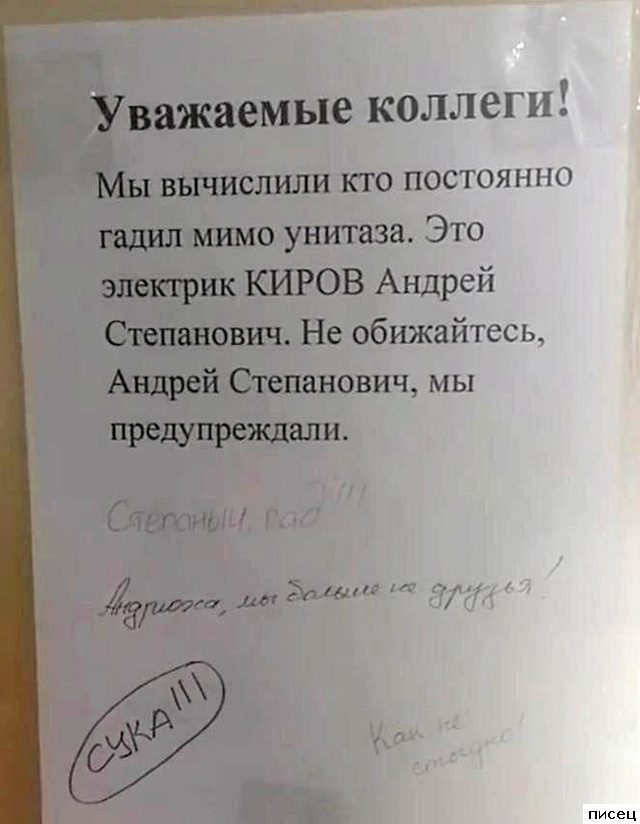 Уважаемые коллеги!
Мы вычислили кто постоянно
гадил мимо унитаза. Это
электрик КИРОВ Андрей
Степанович. Не обижайтесь,
Андрей Степанович, мы
предупреждали.
Степаныч,
Андрюха, мы больше не друзья!
СУКА!!!
Как не
стыдно!
писец